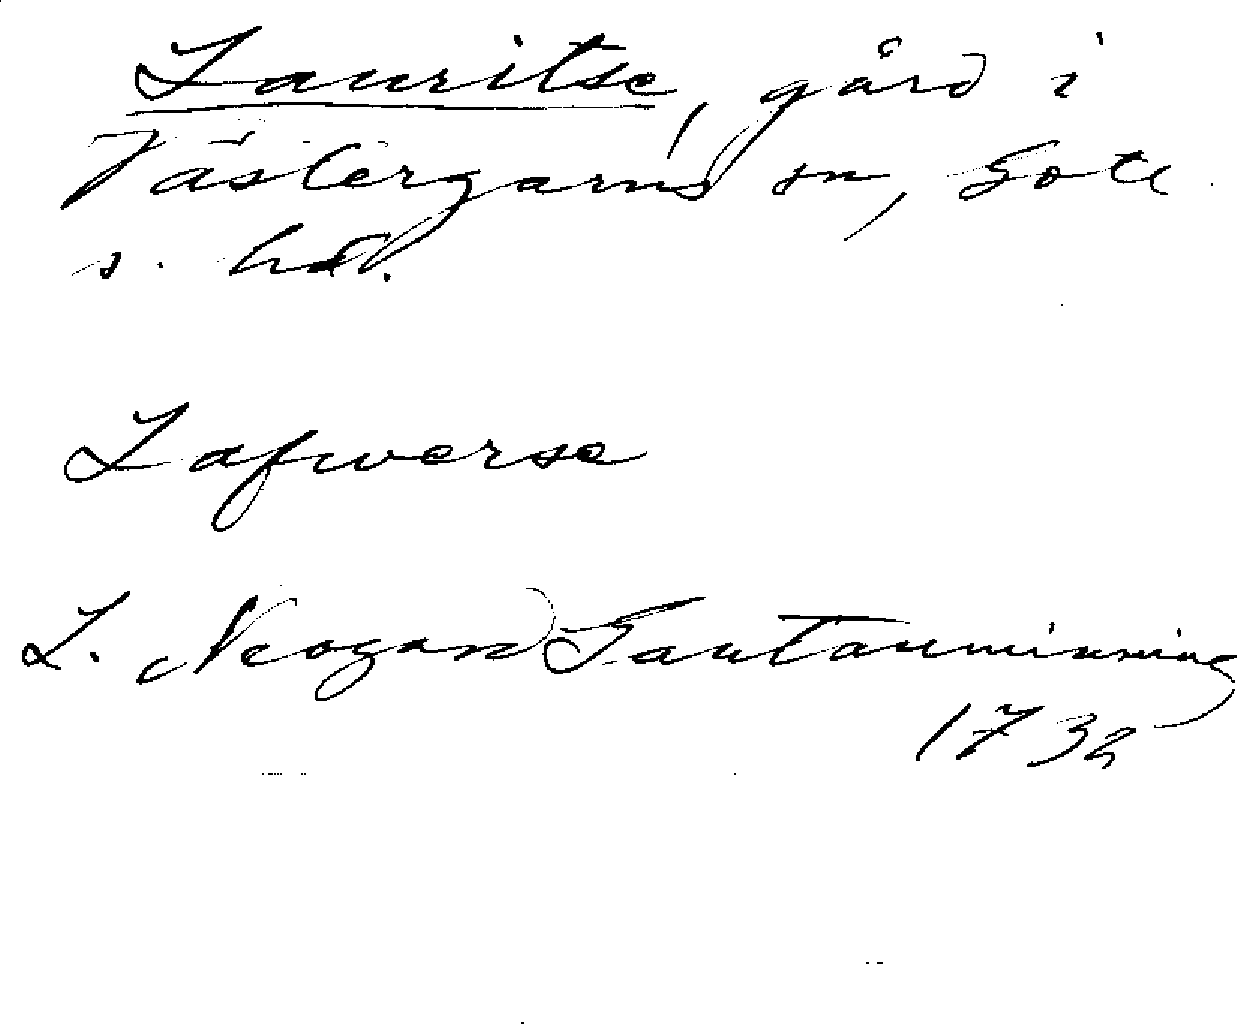 Lauritse, gård i
Västergarns sn, Gotl
s. hd.
Lafwerse
L. Neogard Gautauminning
1732